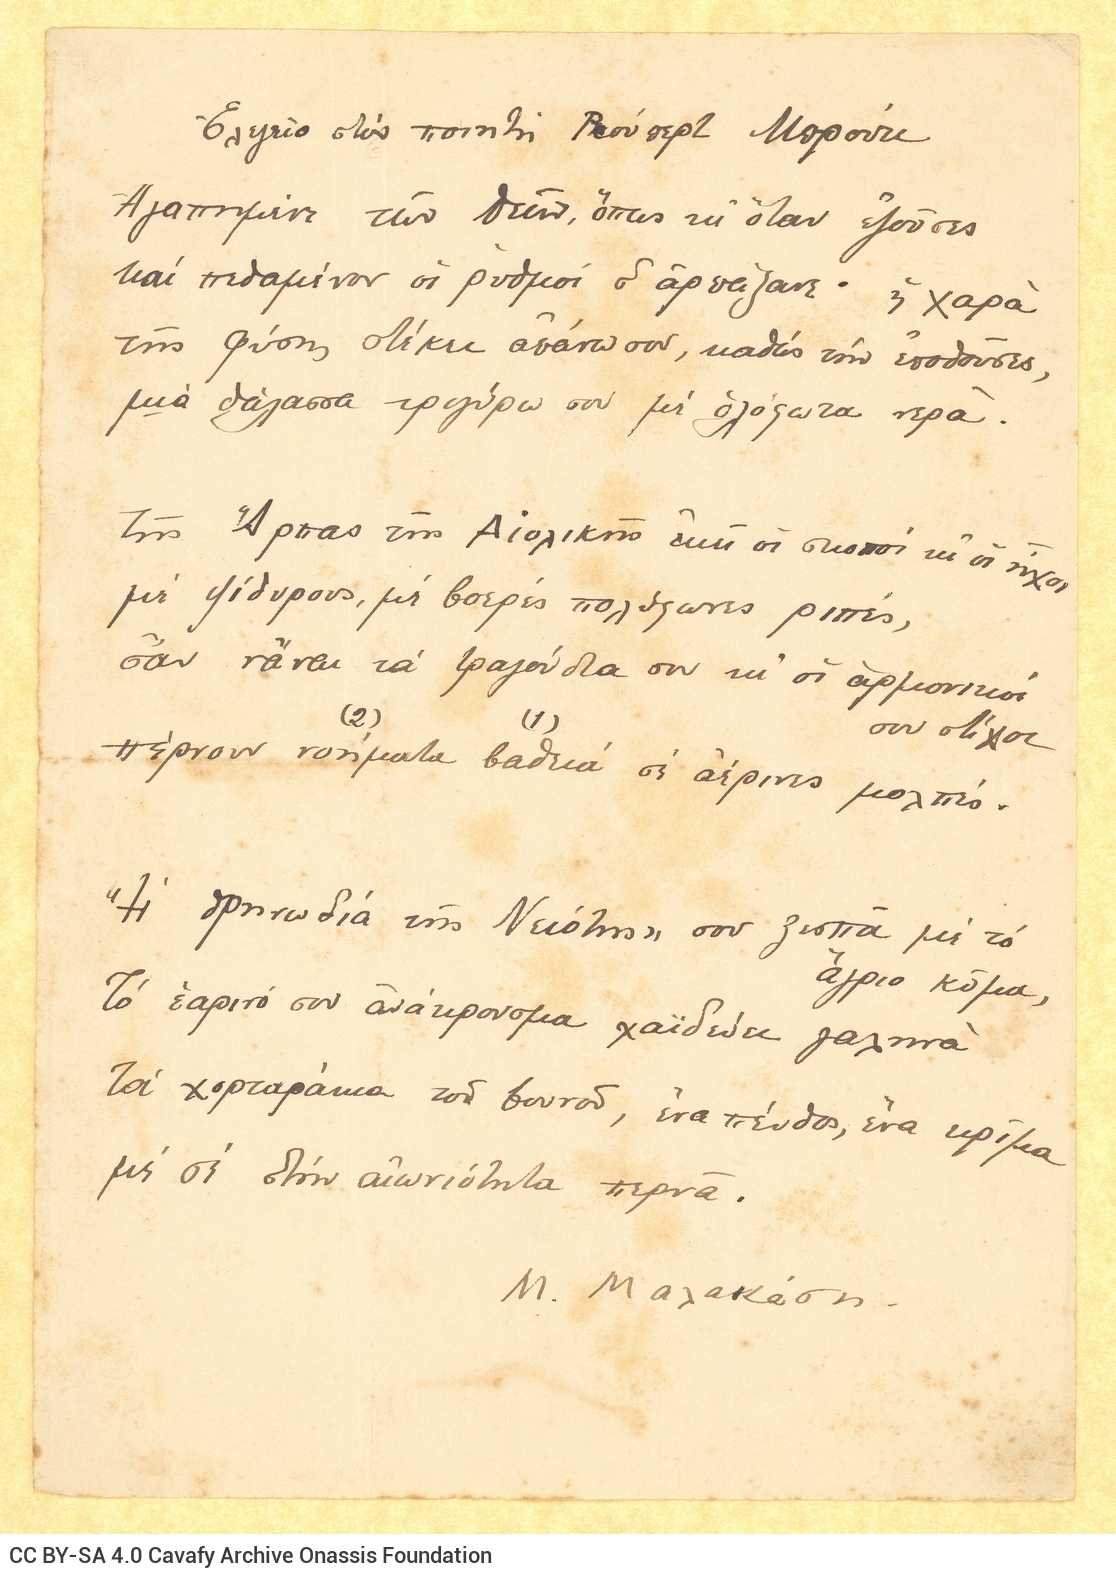 Ἐλεγεῖο στὸν ποιητὴ Ρούπερτ Μπρούκ
Ἀγαπημένε τῶν θεῶν, ὅπως κι' ὅταν ἐζοῦσες
καὶ πεθαμένον οἱ ρυθμοὶ σ' ἁρπάξανε· ἡ χαρὰ
τῆς φύσης στέκει ἀπάνω σου, καθὼς τὴν ἐποθοῦσες,
μιὰ θάλασσα τριγύρω σου μὲ ὁλόφωτα νερά.
τῆς Ἅρπας τῆς Αἰολικῆς ἐκεῖ οἱ σκοποὶ κι' οἱ ἦχοι
μὲ ψίθυρους, μὲ βοερὲς πολύφωνες ριπές,
σὰν νἆναι τὰ τραγούδια σου κι' οἱ ἁρμονικοὶ
σου στίχοι
(2) (1)
πέρνουν νοήματα βαθειὰ σὲ ἀέρινες μολπές.
"Ἡ θρηνωδία τῆς Νειότης" σου ξεσπᾶ μὲ τὸ
ἄγριο κῦμα,
Τὸ ἐαρινό σου ἀνάκρουσμα χαϊδεύει γαληνὰ
Τὰ χορταράκια τοῦ βουνοῦ, ἕνα πένθος, ἕνα κρῖμα
μὲ σὲ στὴν αἰωνιότητα περνᾶ.
Μ. Μαλακάση.
CC BY-SA 4.0 Cavafy Archive Onassis Foundation